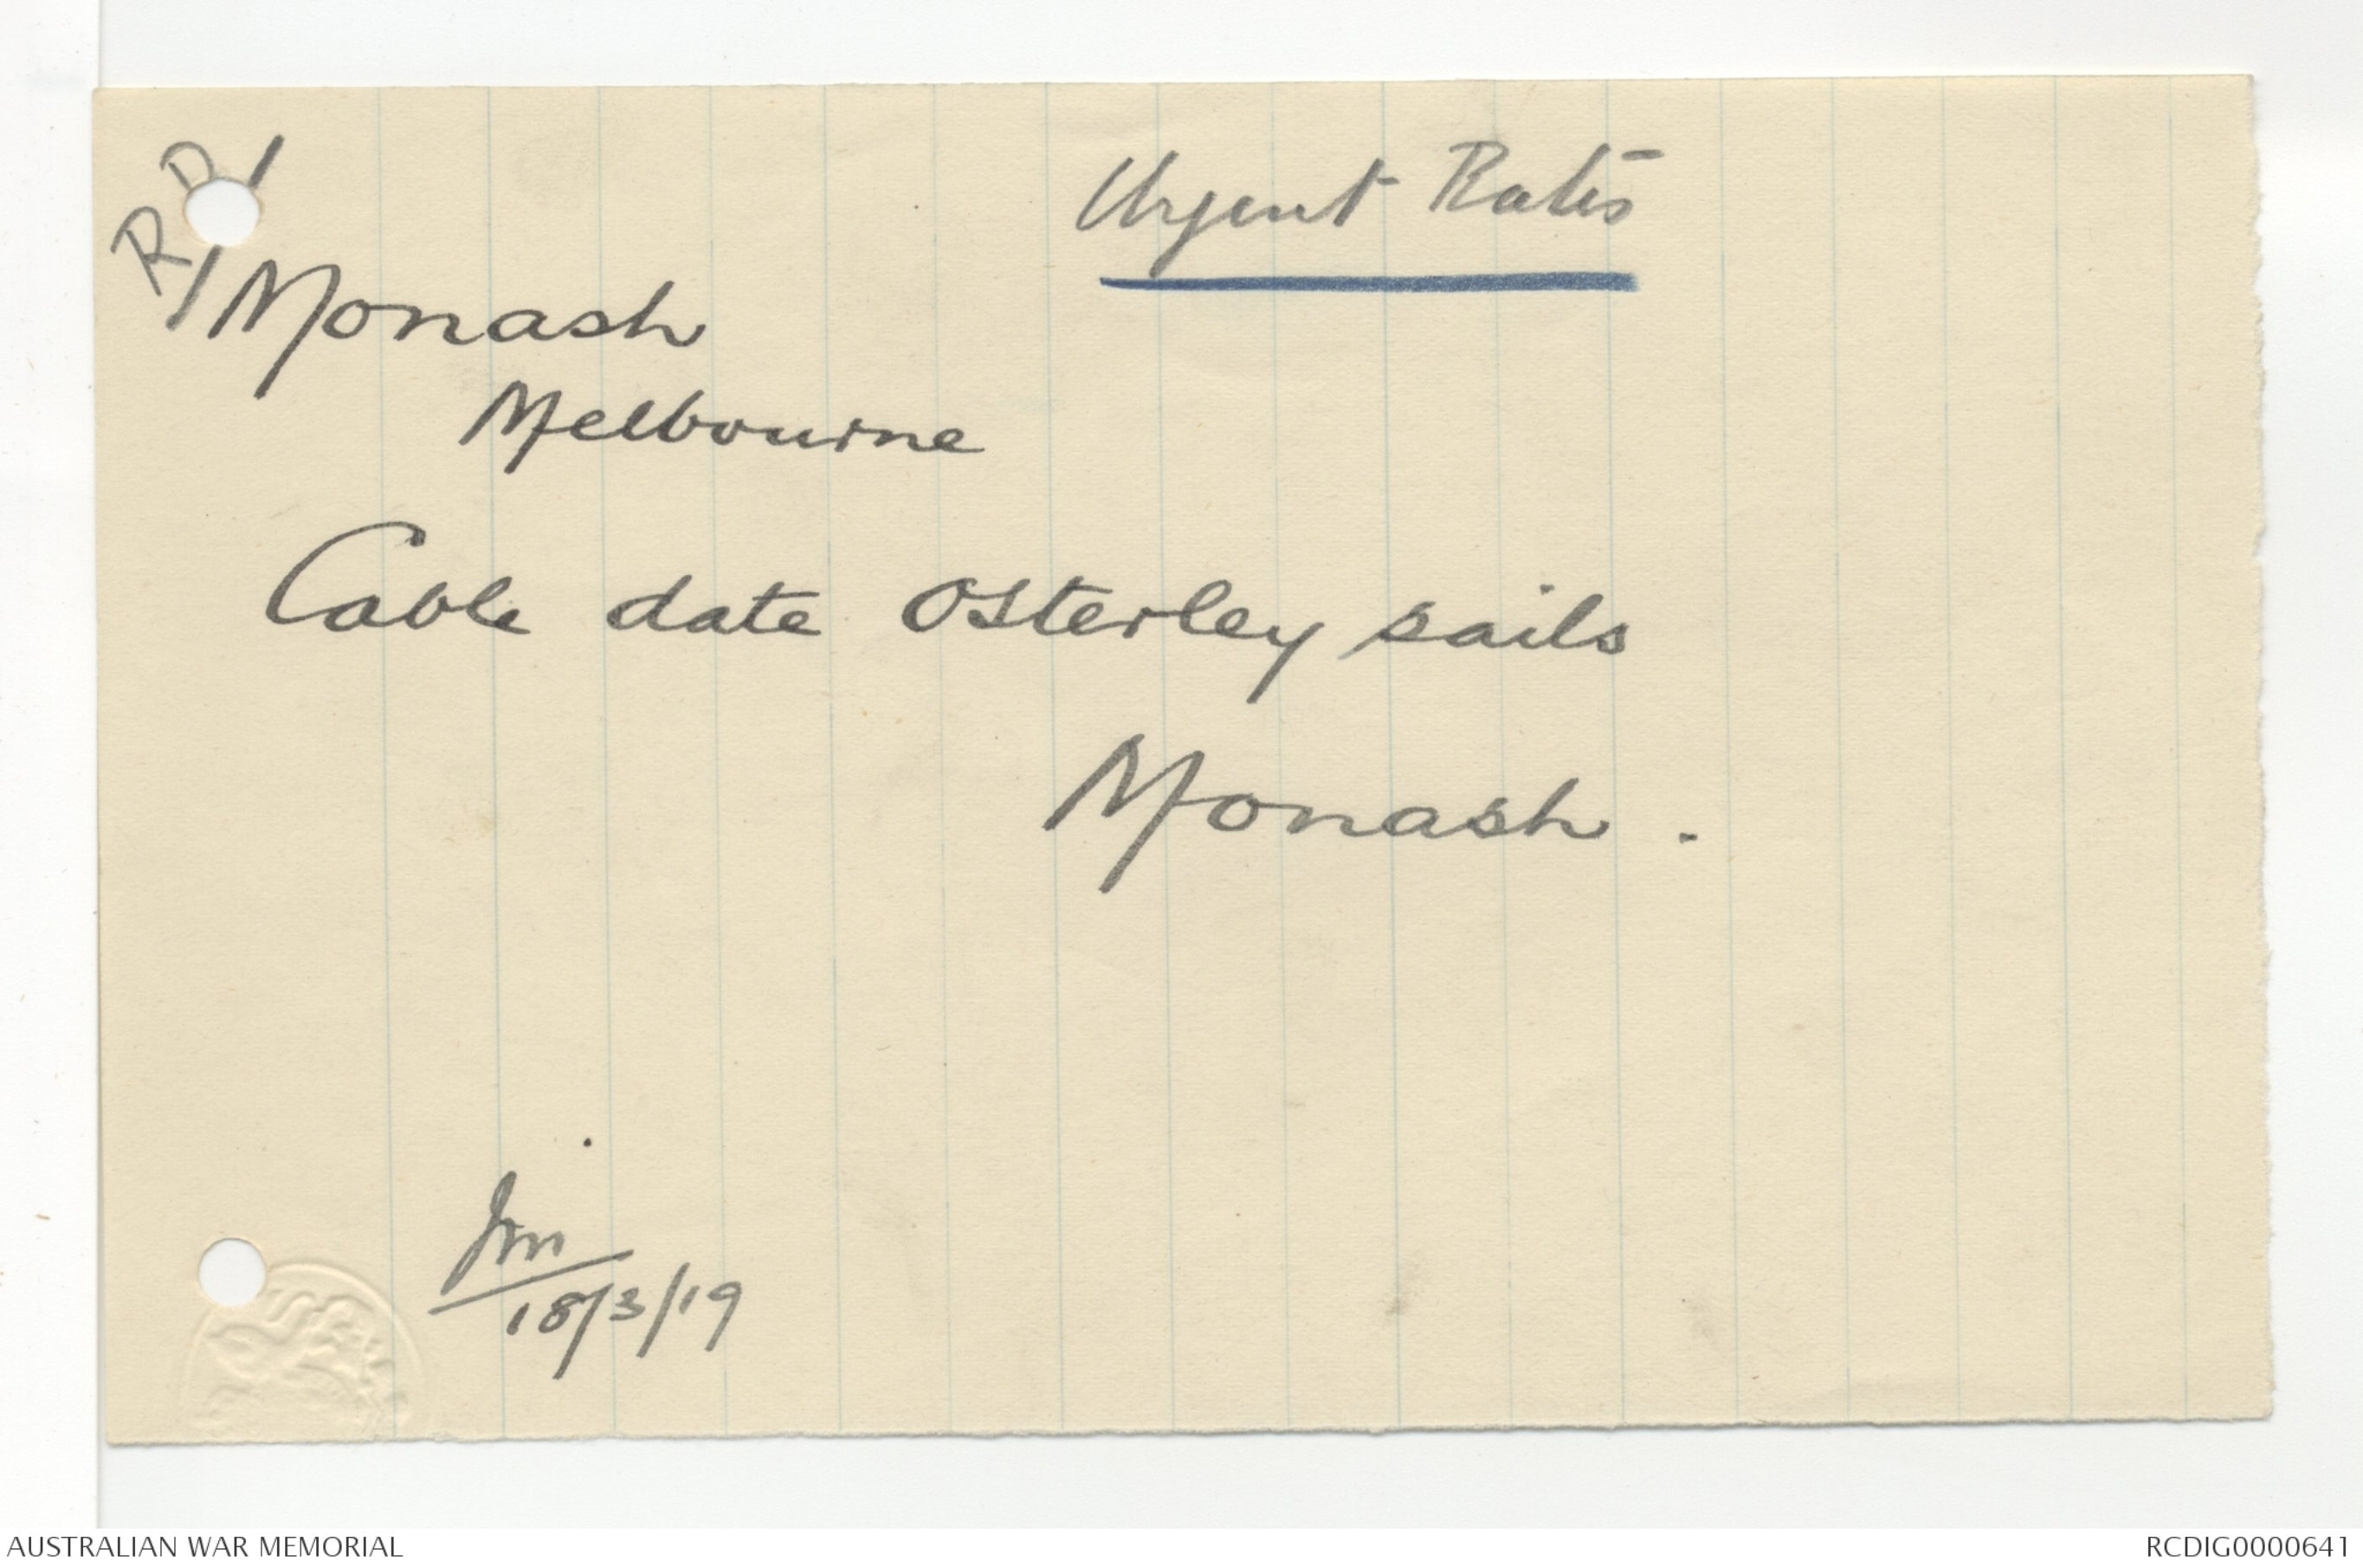 R D
Urgent Rates
Monash
Melbourne
Cable date Osterley sails
Monash.
JM
18/3/19
AUSTRALIAN WAR MEMORIAL
RCDIG0000641